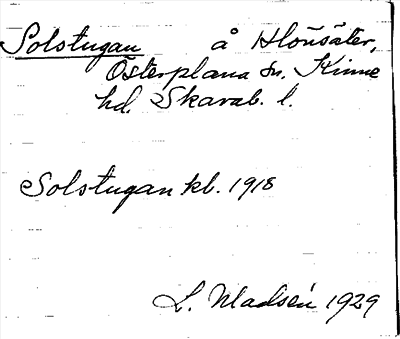 Solstugan å Hönsäter,
Österplana sn. Kinne
hd. Skarab. l.
Solstugan kb. 1918
L. Madsén 1929